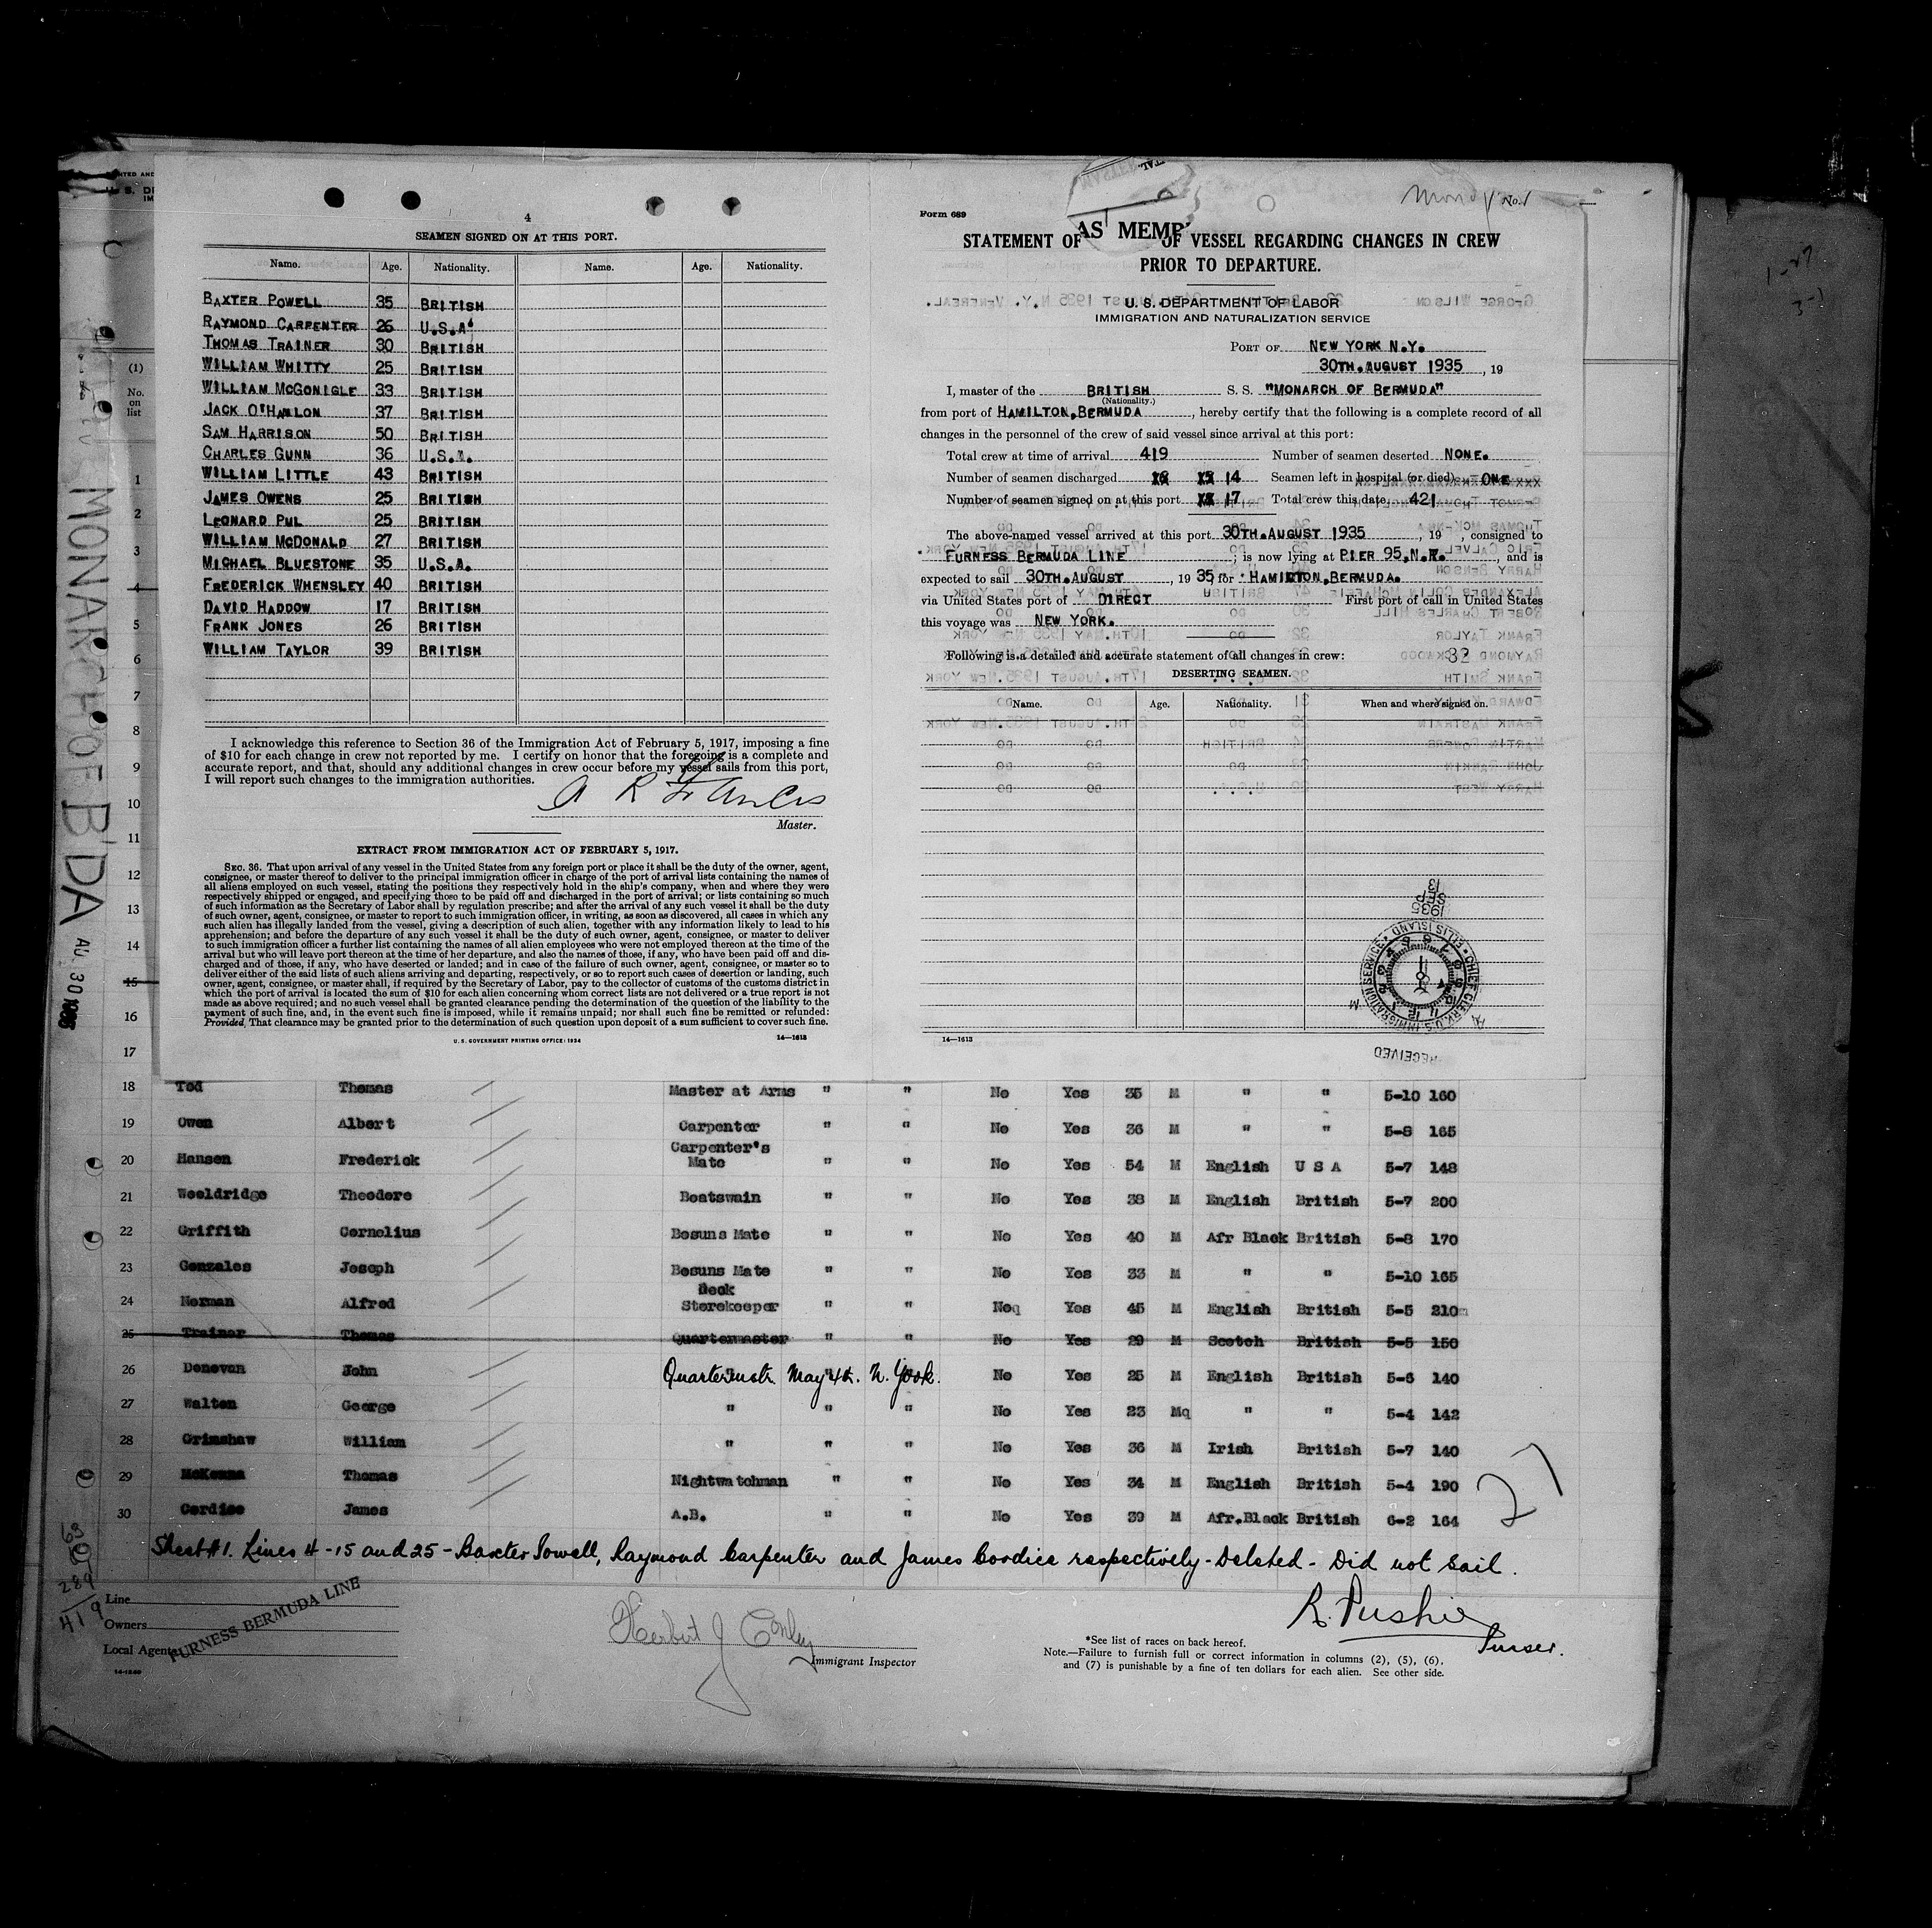 4
SEAMEN SIGNED ON AT THIS PORT.
Name. Age. Nationality. Name. Age. Nationality.
BAXTER POWELL 35 BRITISH
RAYMOND CARPENTER 26 U.S.A.
THOMAS TRAINER 30 BRITISH
WILLIAM WHITTY 25 BRITISH
WILLIAM MCGONIGLE 33 BRITISH
JACK O'HANLON 37 BRITISH
SAM HARRISON 50 BRITISH
CHARLES GUNN 36 U.S.A.
WILLIAM LITTLE 43 BRITISH
JAMES OWENS 25 BRITISH
LEONARD PUL 25 BRITISH
WILLIAM MCDONALD 27 BRITISH
MICHAEL BLUESTONE 35 U.S.A.
FREDERICK WHENSLEY 40 BRITISH
DAVID HADDOW 17 BRITISH
FRANK JONES 26 BRITISH
WILLIAM TAYLOR 39 BRITISH
I acknowledge this reference to Section 36 of the Immigration Act of February 5, 1917, imposing a fine
of $10 for each change in crew not reported by me. I certify on honor that the foregoing is a complete and
accurate report, and that, should any additional changes in crew occur before my vessel sails from this port,
I will report such changes to the immigration authorities.
A R Francis
Master.
EXTRACT FROM IMMIGRATION ACT OF FEBRUARY 5, 1917.
SEC. 36. That upon arrival of any vessel in the United States from any foreign port or place it shall be the duty of the owner, agent,
consignee, or master thereof to deliver to the principal immigration officer in charge of the port of arrival lists containing the names of
all aliens employed on such vessel, stating the positions they respectively hold in the ship's company, when and where they were
respectively shipped or engaged, and specifying those to be paid off and discharged in the port of arrival; or lists containing so much
of such information as the Secretary of Labor shall by regulation prescribe; and after the arrival of any such vessel it shall be the duty
of such owner, agent, consignee, or master to report to such immigration officer, in writing, as soon as discovered, all cases in which any
such alien has illegally landed from the vessel, giving a description of such alien, together with any information likely to lead to his
apprehension; and before the departure of any such vessel it shall be the duty of such owner, agent, consignee, or master to deliver
to such immigration officer a further list containing the names of all alien employees who were not employed thereon at the time of the
arrival but who will leave port thereon at the time of her departure, and also the names of those, if any, who have been paid off and dis-
charged and of those, if any, who have deserted or landed; and in case of the failure of such owner, agent, consignee, or master so to
deliver either of the said lists of such aliens arriving and departing, respectively, or so to report such cases of desertion or landing, such
owner, agent, consignee, or master shall, if required by the Secretary of Labor, pay to the collector of customs of the customs district in
which the port of arrival is located the sum of $10 for each alien concerning whom correct lists are not delivered or a true report is not
made as above required; and no such vessel shall be granted clearance pending the determination of the question of the liability to the
payment of such fine, and, in the event such fine is imposed, while it remains unpaid; nor shall such fine be remitted or refunded:
Provided, That clearance may be granted prior to the determination of such question upon deposit of a sum sufficient to cover such fine.
U. S. GOVERNMENT PRINTING OFFICE: 1934 14—1613
Form 689
No. 1
AS MEMB
STATEMENT OF OF VESSEL REGARDING CHANGES IN CREW
PRIOR TO DEPARTURE.
U. S. DEPARTMENT OF LABOR
IMMIGRATION AND NATURALIZATION SERVICE
PORT OF NEW YORK N.Y.
30TH.AUGUST 1935, 19
I, master of the BRITISH S. S. "MONARCH OF BERMUDA"
(Nationality.)
from port of HAMILTON,BERMUDA, hereby certify that the following is a complete record of all
changes in the personnel of the crew of said vessel since arrival at this port:
Total crew at time of arrival 419 Number of seamen deserted NONE.
Number of seamen discharged 14 Seamen left in hospital (or died) ONE
Number of seamen signed on at this port 17 Total crew this date 421
The above-named vessel arrived at this port 30TH.AUGUST 1935, 19 , consigned to
FURNESS BERMUDA LINE; is now lying at PIER 95,N.R., and is
expected to sail 30TH.AUGUST, 1935, for HAMILTON,BERMUDA.
via United States port of DIRECT First port of call in United States
this voyage was NEW YORK.
Following is a detailed and accurate statement of all changes in crew: 32
DESERTING SEAMEN.
Name. Age. Nationality. When and where signed on.
1935
SEP
13
CHIEF CLERK, U.S. IMMIGRATION SERVICE ELLIS ISLAND
RECEIVED
14—1613
(1)
No.
on
list
1
2
3
4
5
6
7
8
9
10
11
12
13
14
15
16
17
MONARCH OF B'DA AU 30 1935
18 Tod Thomas Master at Arms " " No Yes 35 M " " 5-10 160
19 Owen Albert Carpenter " " No Yes 36 M " " 5-8 165
20 Hansen Frederick Carpenter's Mate " " No Yes 54 M English U S A 5-7 148
21 Wooldridge Theodore Boatswain " " No Yes 38 M English British 5-7 200
22 Griffith Cornelius Bosuns Mate " " No Yes 40 M Afr Black British 5-8 170
23 Gonzales Joseph Bosuns Mate " " No Yes 33 M " " 5-10 165
24 Norman Alfred Deck Storekeeper " " Noq Yes 45 M English British 5-5 210
25 Trainor Thomas Quartermaster " " No Yes 29 M Scotch British 5-5 150
26 Donovan John Quartermstr May 4th. N. York. No Yes 25 M English British 5-6 140
27 Walton George " " " No Yes 23 Mq " " 5-4 142
28 Grimshaw William " " " No Yes 36 M Irish British 5-7 140
29 McKenna Thomas Nightwatchman " " No Yes 34 M English British 5-4 190
30 Cordice James A.B. " " No Yes 39 M Afr.Black British 6-2 164
27
Sheet #1. Lines 4 - 15 and 25 - Baxter Powell, Raymond Carpenter and James Cordice respectively - Deleted - Did not sail.
289
419
Line
Owners
Local Agents
FURNESS BERMUDA LINE
Herbert J Conley
Immigrant Inspector
R. Pushie
Purser.
*See list of races on back hereof.
Note.—Failure to furnish full or correct information in columns (2), (5), (6),
and (7) is punishable by a fine of ten dollars for each alien. See other side.